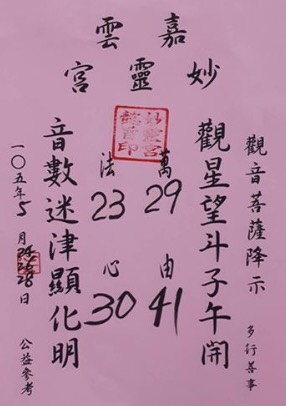 嘉雲
妙靈宮
觀音菩薩降示
多行善事
觀星望斗子午開
萬 29
由 41
法 23
心 30
妙靈宮
音數迷津顯化明
一〇五年5月 28日
公益參考